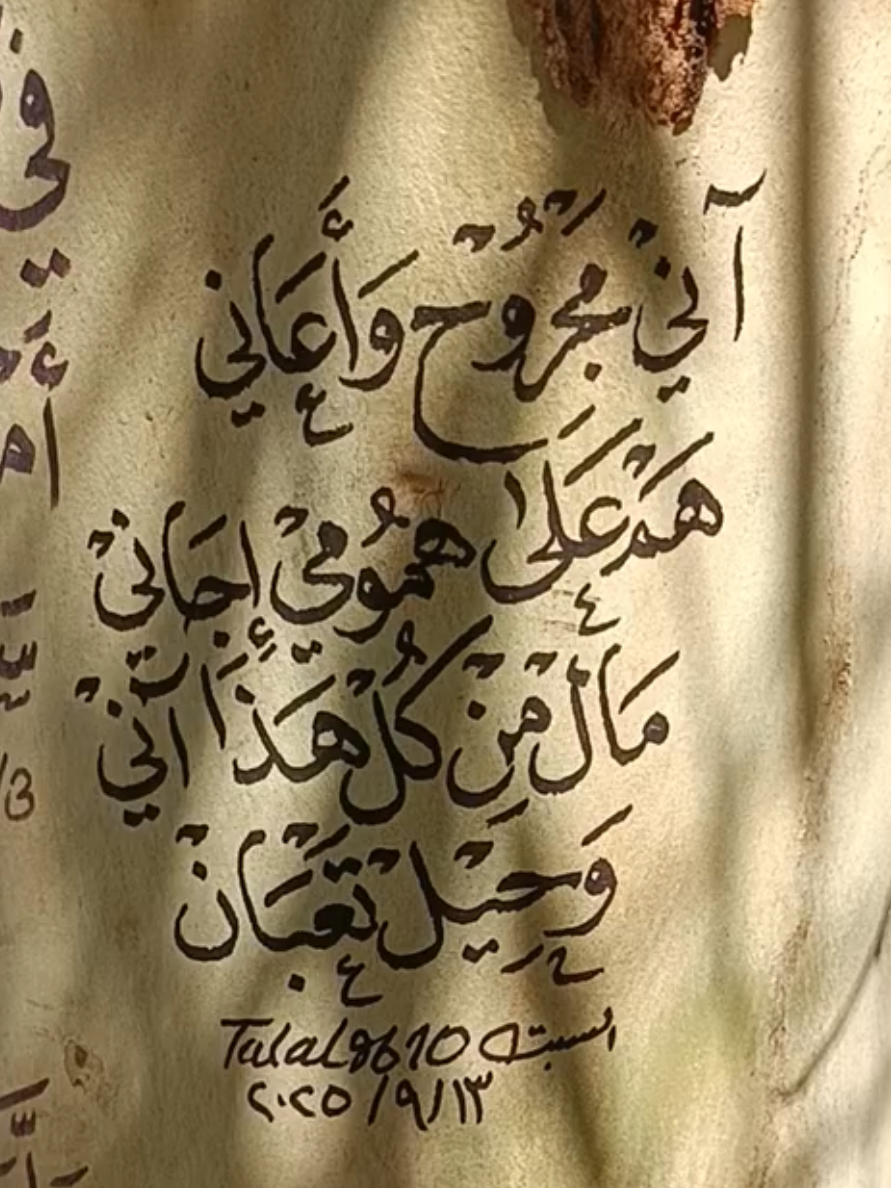 آنِيْ مَجْرُوْحْ وَأَعَانِي
هَمْ عَلَىٰ هُمُوْمِيْ إِجَانِيْ
مَالْ مِنْ كُلْ هَذَا آنِيْ
وَحِيْلْ تَعْبَانْ
السبت Talal8610
٢٠٢٥/٩/١٣